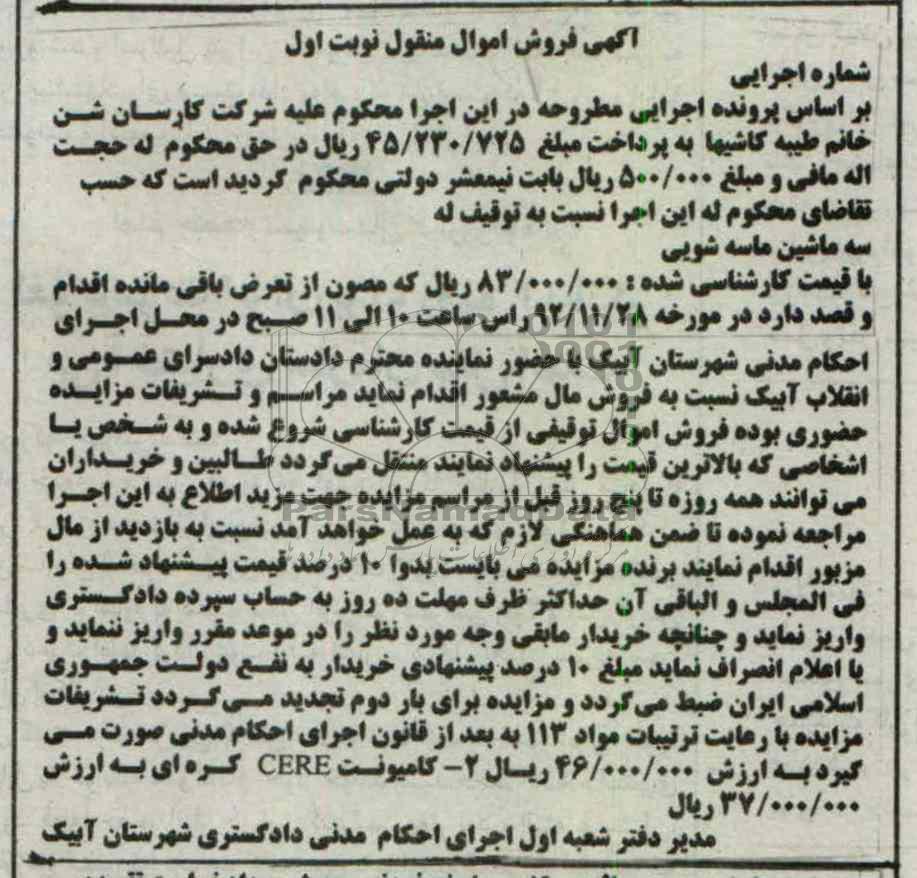 آگهی فروش اموال منقول نوبت اول
شماره اجرایی
بر اساس پرونده اجرایی مطروحه در این اجرا محکوم علیه شرکت کارسان شن
خانم طیبه کاشیها به پرداخت مبلغ ۴۵/۲۳۰/۷۲۵ ریال در حق محکوم له حجت
اله مافی و مبلغ ۵۰۰/۰۰۰ ریال بابت نیمعشر دولتی محکوم گردید است که حسب
تقاضای محکوم له این اجرا نسبت به توقیف له
سه ماشین ماسه شویی
با قیمت کارشناسی شده : ۸۳/۰۰۰/۰۰۰ ریال که مصون از تعرض باقی مانده اقدام
و قصد دارد در مورخه ۹۲/۱۱/۲۸ راس ساعت ۱۰ الی ۱۱ صبح در محل اجرای
احکام مدنی شهرستان آبیک با حضور نماینده محترم دادستان دادسرای عمومی و
انقلاب آبیک نسبت به فروش مال مشعور اقدام نماید مراسم و تشریفات مزایده
حضوری بوده فروش اموال توقیفی از قیمت کارشناسی شروع شده و به شخص یا
اشخاصی که بالاترین قیمت را پیشنهاد نمایند منتقل می گردد طالبین و خریداران
می توانند همه روزه تا پنج روز قبل از مراسم مزایده جهت مزید اطلاع به این اجرا
مراجعه نموده تا ضمن هماهنگی لازم که به عمل خواهد آمد نسبت به بازدید از مال
مزبور اقدام نمایند برنده مزایده می بایست بدوا ۱۰ درصد قیمت پیشنهاد شده را
فی المجلس و الباقی آن حداکثر ظرف مهلت ده روز به حساب سپرده دادگستری
واریز نماید و چنانچه خریدار مابقی وجه مورد نظر را در موعد مقرر واریز ننماید و
یا اعلام انصراف نماید مبلغ ۱۰ درصد پیشنهادی خریدار به نفع دولت جمهوری
اسلامی ایران ضبط می گردد و مزایده برای بار دوم تجدید می گردد تشریفات
مزایده با رعایت ترتیبات مواد ۱۱۳ به بعد از قانون اجرای احکام مدنی صورت می
گیرد به ارزش ۴۶/۰۰۰/۰۰۰ ریال ۲- کامیونت CERE کره ای به ارزش
۳۷/۰۰۰/۰۰۰ ریال
مدیر دفتر شعبه اول اجرای احکام مدنی دادگستری شهرستان آبیک
ParsNamadData